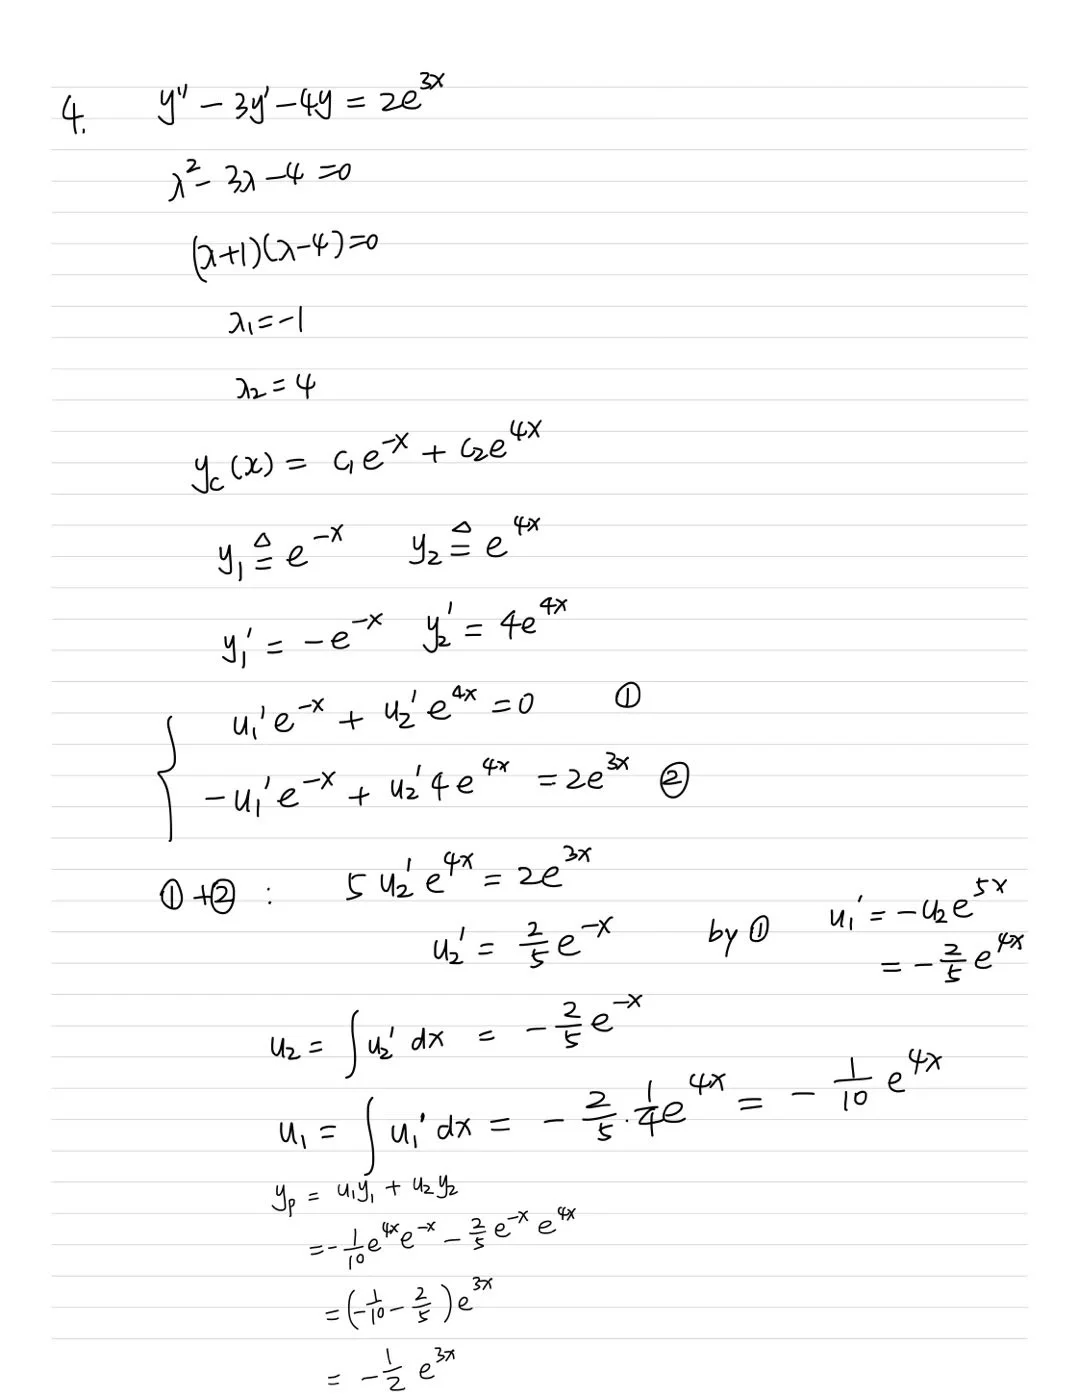 4. y'' - 3y' - 4y = 2e^{3x}
λ² - 3λ - 4 = 0
(λ+1)(λ-4)=0
λ₁ = -1
λ₂ = 4
y_c(x) = c₁e^{-x} + c₂e^{4x}
y₁ ≜ e^{-x} y₂ ≜ e^{4x}
y₁' = -e^{-x} y₂' = 4e^{4x}
{ u₁'e^{-x} + u₂'e^{4x} = 0 ①
-u₁'e^{-x} + u₂'4e^{4x} = 2e^{3x} ②
①+②: 5u₂'e^{4x} = 2e^{3x}
u₂' = 2/5 e^{-x} by ① u₁' = -u₂e^{5x}
= -2/5 e^{4x}
u₂ = ∫u₂' dx = -2/5 e^{-x}
u₁ = ∫u₁' dx = -2/5 · 1/4 e^{4x} = -1/10 e^{4x}
y_p = u₁y₁ + u₂y₂
= -1/10 e^{4x}e^{-x} - 2/5 e^{-x}e^{4x}
= (-1/10 - 2/5)e^{3x}
= -1/2 e^{3x}